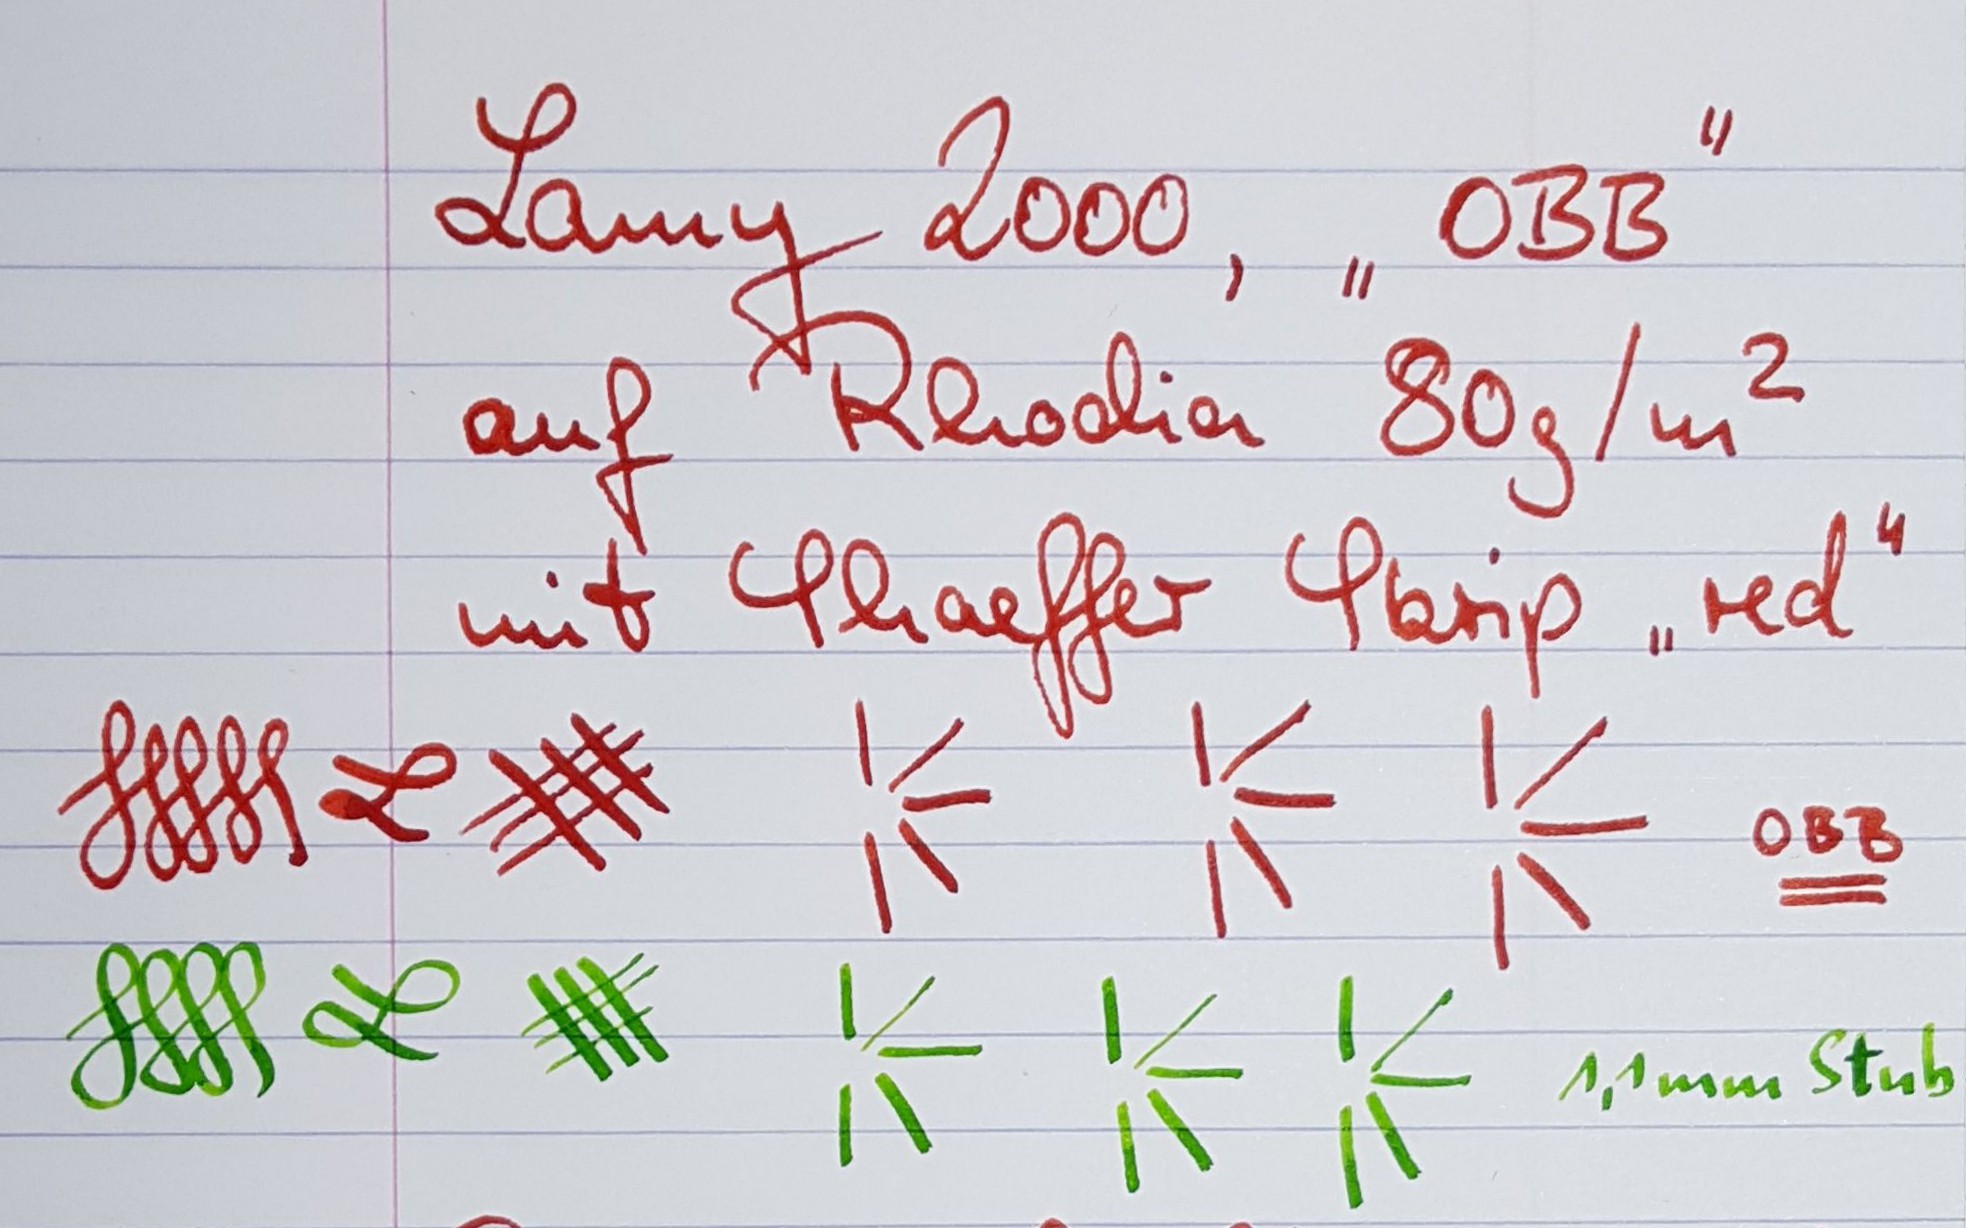 Lamy 2000, „OBB“
auf Rhodia 80g/m²
mit Shaeffer Skrip „red“
OBB
1,1mm Stub